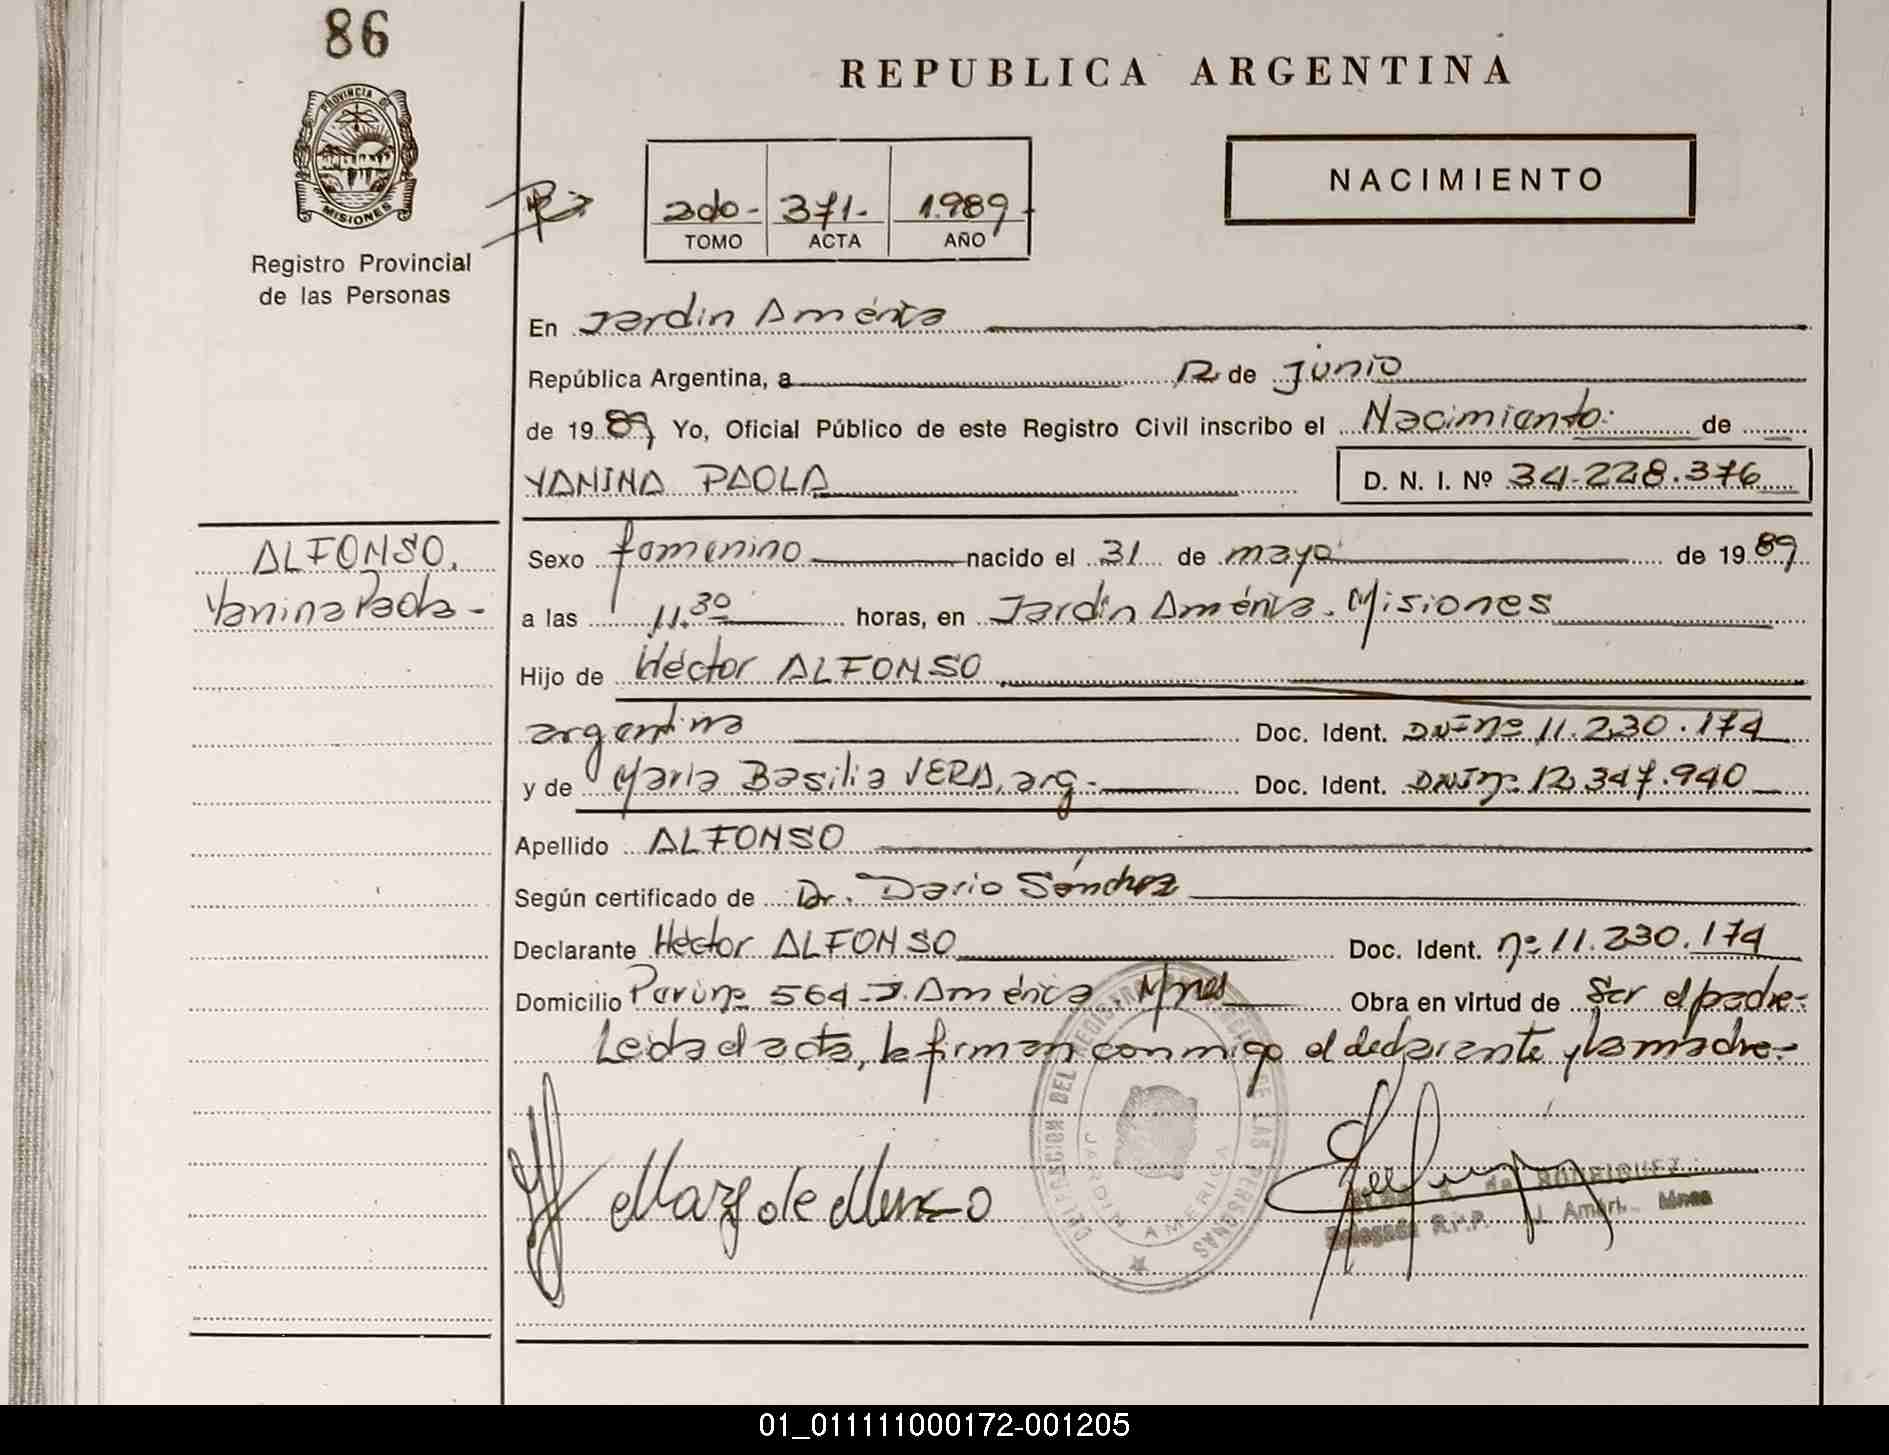 86
REPUBLICA ARGENTINA
PROVINCIA DE
MISIONES
Registro Provincial
de las Personas
2do- 371- 1.989
TOMO ACTA AÑO
NACIMIENTO
En Jardin América
República Argentina, a 12 de junio
de 1989 Yo, Oficial Público de este Registro Civil inscribo el Nacimiento de
YANINA PAOLA D. N. I. Nº 34.228.376
ALFONSO,
Yanina Paola -
Sexo femenino nacido el 31 de mayo de 1989
a las 11.30 horas, en Jardín América. Misiones
Hijo de Héctor ALFONSO
argentina Doc. Ident. DNI nº 11.230.174
y de María Basilia VERA, arg.- Doc. Ident. DNI nº 12.347.940
Apellido ALFONSO
Según certificado de Dr. Dario Sánchez
Declarante Héctor ALFONSO Doc. Ident. nº 11.230.174
Domicilio 564 - J. América Mnes Obra en virtud de Ser el padre-
Leida el acta, la firman conmigo el declarante y la madre-
DELEGACION DEL REGISTRO PROVINCIAL DE LAS PERSONAS
JARDIN AMERICA
de RODRIGUEZ
Delegada R.P.P. J. Améri. Mnes
01_011111000172-001205